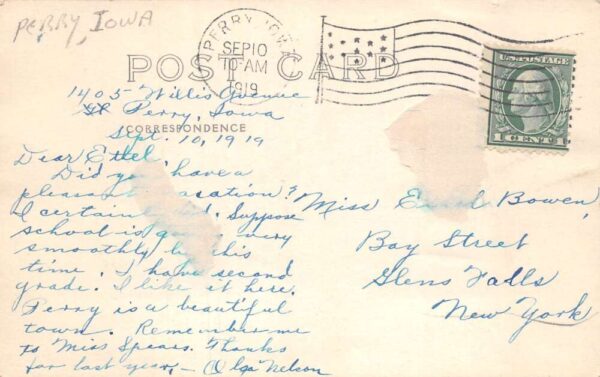 PERRY, IOWA
PERRY, IOWA
SEP 10
10-AM
1919
U.S. POSTAGE
1 CENT 1
POST CARD
1405 Willis Avenue
Perry, Iowa
Sept. 10, 1919
CORRESPONDENCE
Dear Ethel,
Did you have a
pleasant vacation?
I certainly did. Suppose
school is going very
smoothly by this
time. I have second
grade. I like it here.
Perry is a beautiful
town. Remember me
to Miss Spears. Thanks
for last year, - Olga Nelson
Miss Bowen,
Bay Street
Glens Falls
New York